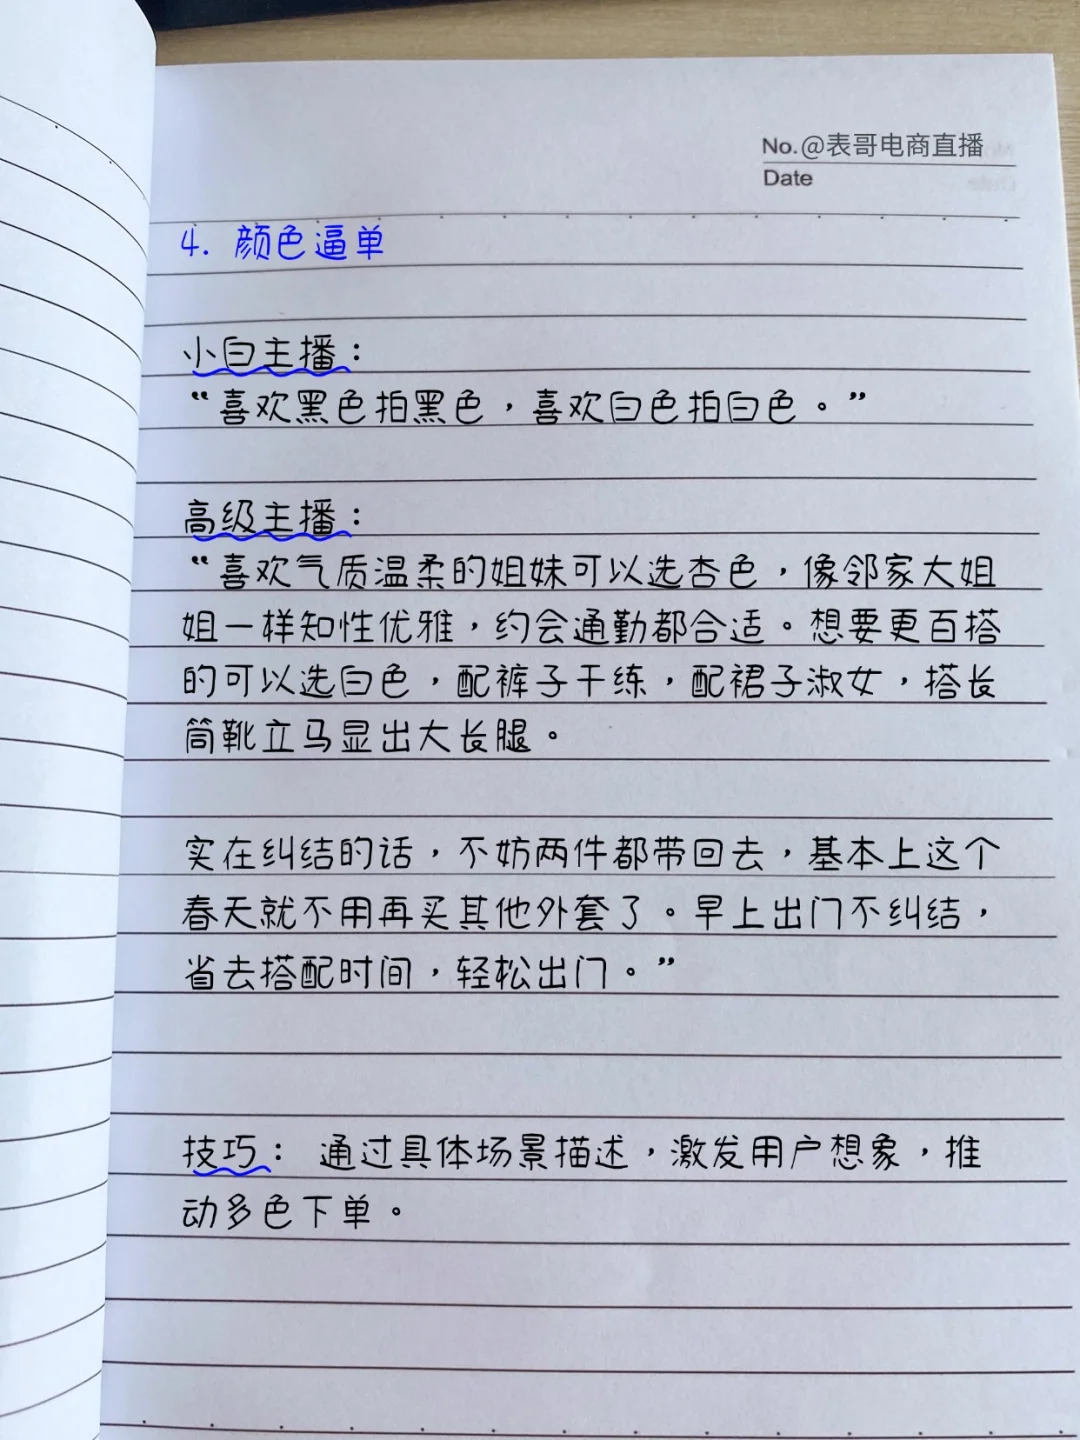 No.@表哥电商直播
Date
4. 颜色逼单
小白主播：
“喜欢黑色拍黑色，喜欢白色拍白色。”
高级主播：
“喜欢气质温柔的姐妹可以选杏色，像邻家大姐
姐一样知性优雅，约会通勤都合适。想要更百搭
的可以选白色，配裤子干练，配裙子淑女，搭长
筒靴立马显出大长腿。
实在纠结的话，不妨两件都带回去，基本上这个
春天就不用再买其他外套了。早上出门不纠结，
省去搭配时间，轻松出门。”
技巧： 通过具体场景描述，激发用户想象，推
动多色下单。